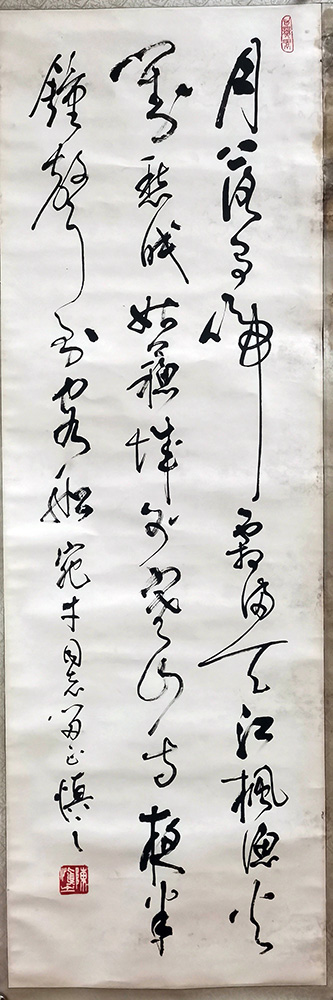 月落烏啼霜滿天江楓漁火
對愁眠姑蘇城外寒山寺夜半
鐘聲到客船 宛才同志留正 慎之